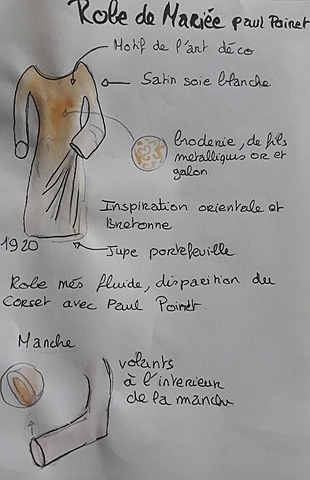 Robe de Mariée Paul Poiret
Motif de l'art déco
Satin soie blanche
broderie, de fils
metalliques or et
galon
Inspiration orientale et
Bretonne
1920
Jupe portefeuille
Robe més fluide, disparition du
Corset avec Paul Poiret.
Manche
volants
à l'interieur
de la manche